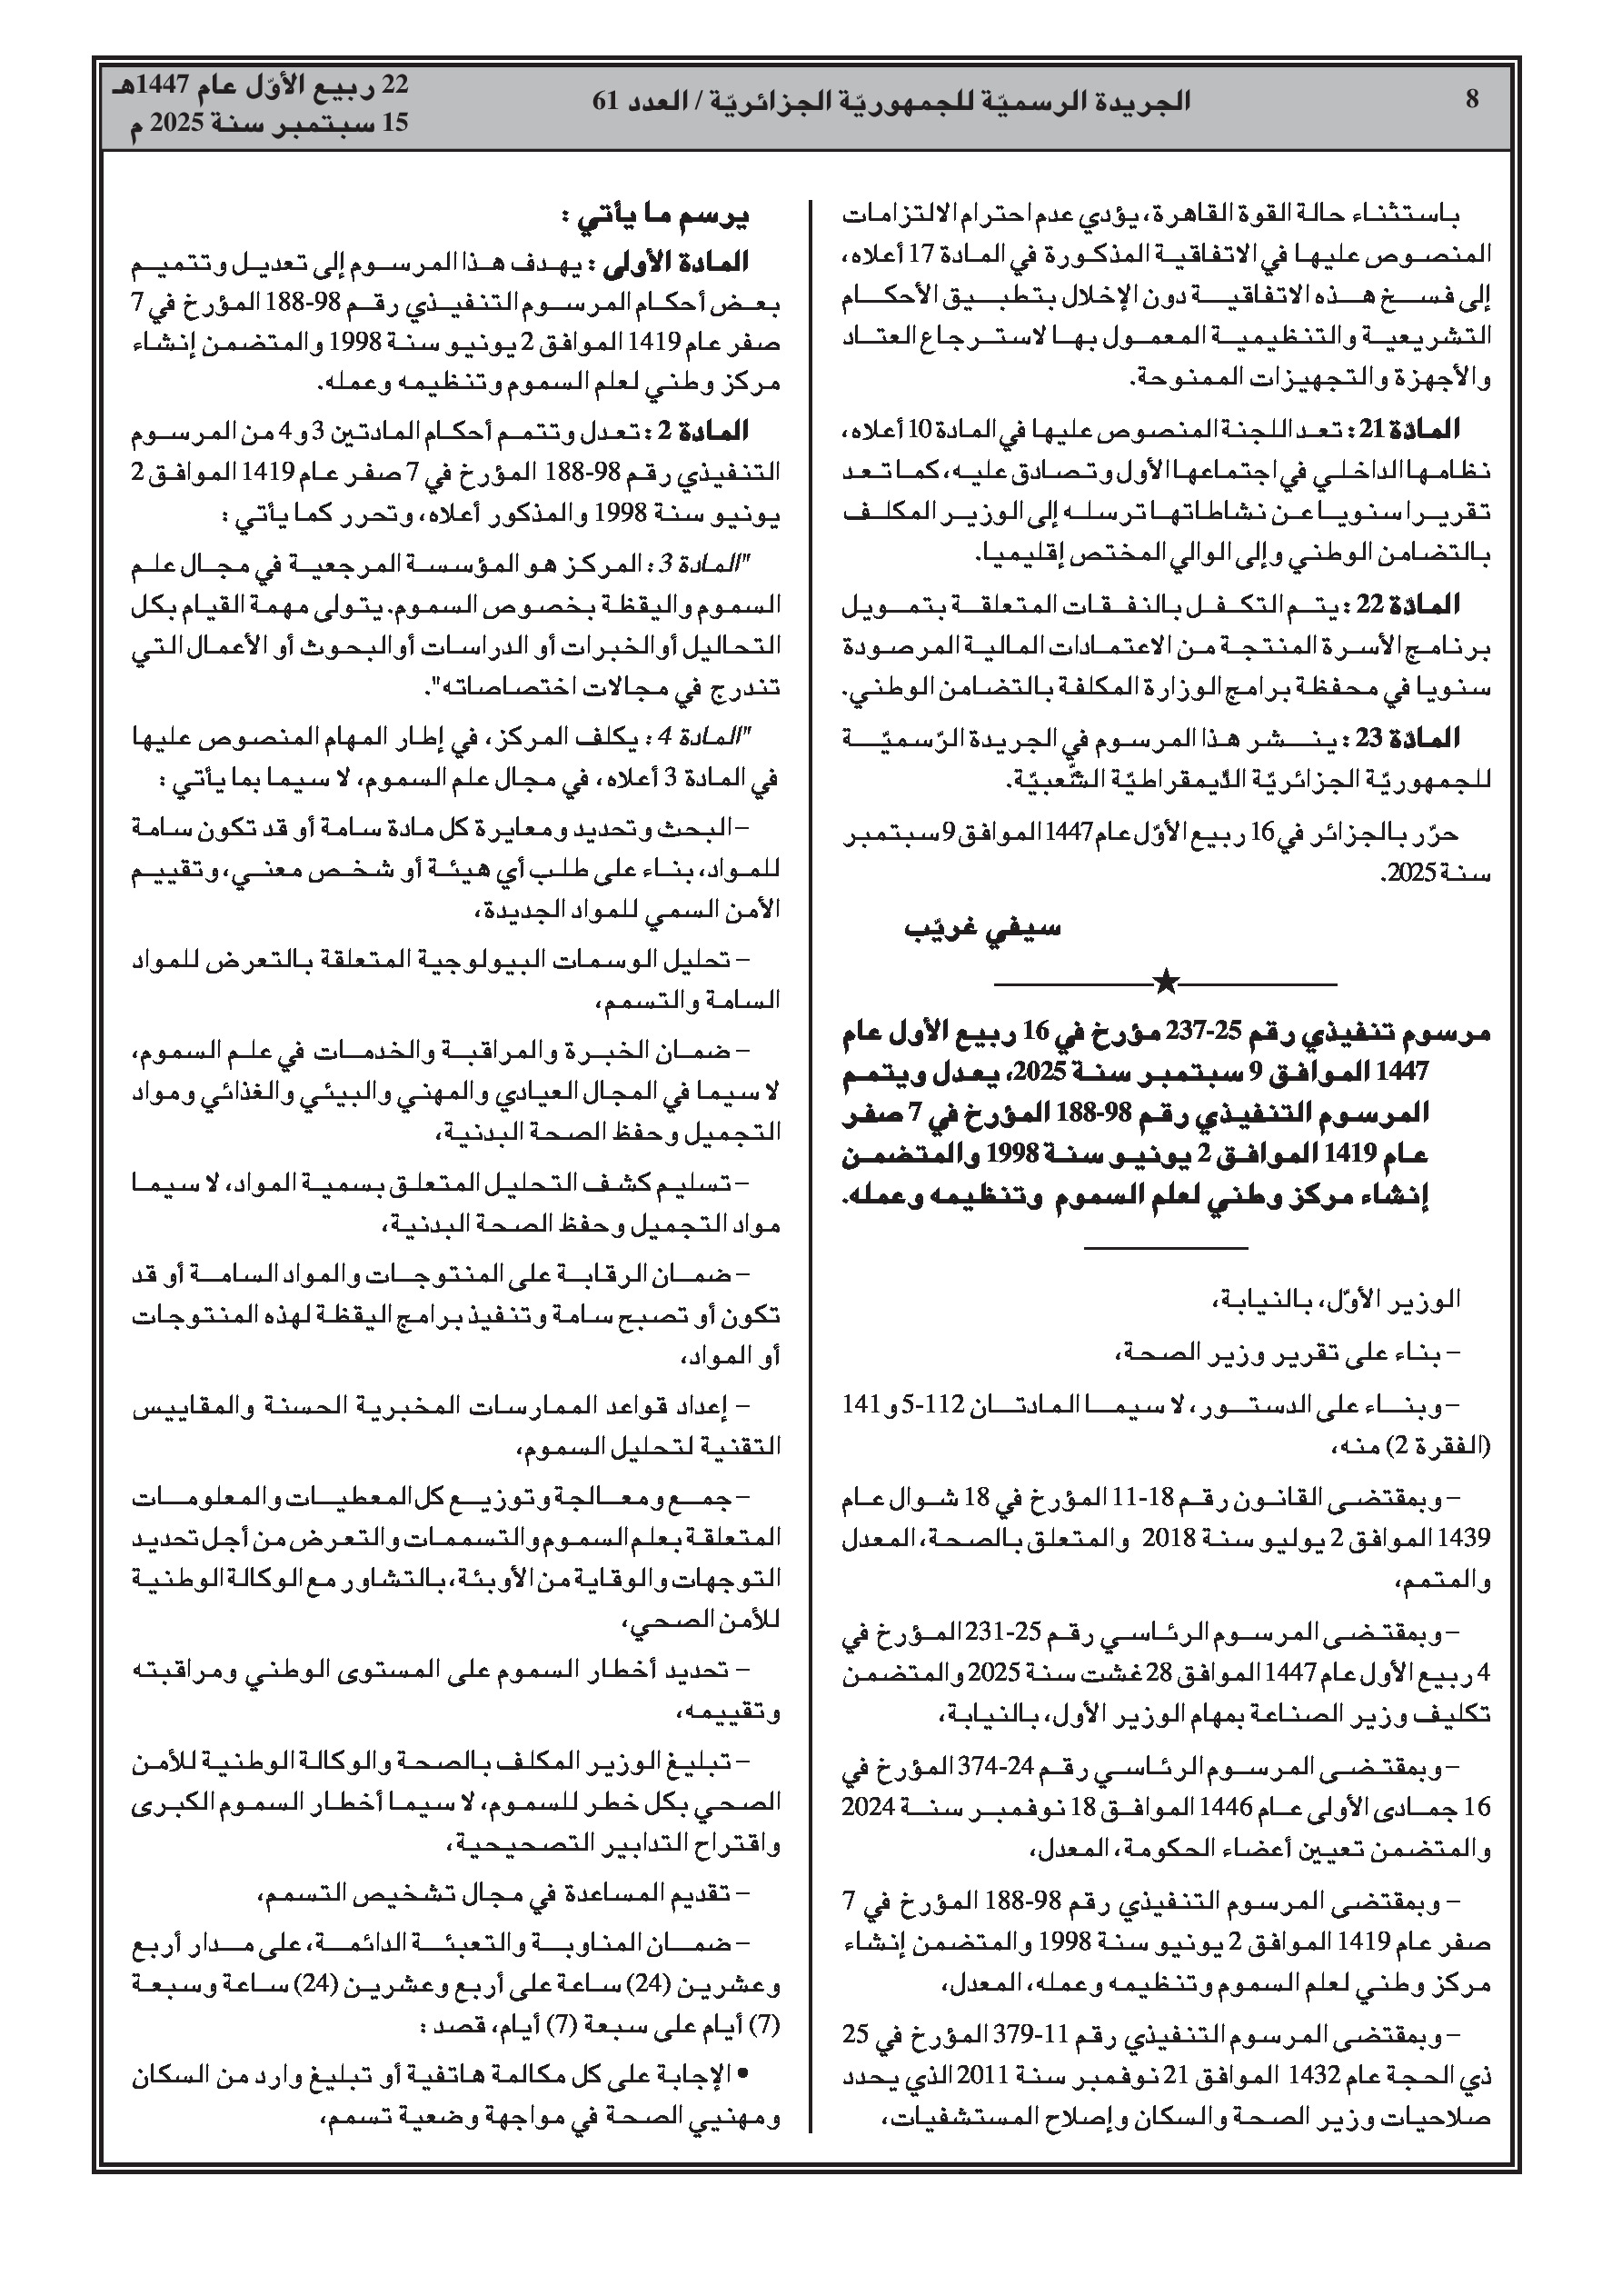 8
الجريدة الرسميّة للجمهوريّة الجزائريّة / العدد 61
22 ربيع الأوّل عام 1447هـ
15 سبتمبر سنة 2025 م
باستثناء حالة القوة القاهرة، يؤدي عدم احترام الالتزامات
المنصوص عليها في الاتفاقية المذكورة في المادة 17 أعلاه،
إلى فسخ هذه الاتفاقية دون الإخلال بتطبيق الأحكام
التشريعية والتنظيمية المعمول بها لاسترجاع العتاد
والأجهزة والتجهيزات الممنوحة.
المادّة 21 : تعد اللجنة المنصوص عليها في المادة 10 أعلاه،
نظامها الداخلي في اجتماعها الأول وتصادق عليه، كما تعد
تقريرا سنويا عن نشاطاتها ترسله إلى الوزير المكلف
بالتضامن الوطني وإلى الوالي المختص إقليميا.
المادّة 22 : يتم التكفل بالنفقات المتعلقة بتمويل
برنامج الأسرة المنتجة من الاعتمادات المالية المرصودة
سنويا في محفظة برامج الوزارة المكلفة بالتضامن الوطني.
المادّة 23 : ينشر هذا المرسوم في الجريدة الرّسميّة
للجمهوريّة الجزائريّة الدّيمقراطيّة الشّعبيّة.
حرّر بالجزائر في 16 ربيع الأوّل عام 1447 الموافق 9 سبتمبر
سنة 2025.
سيفي غريّب
مرسوم تنفيذي رقم 25-237 مؤرخ في 16 ربيع الأول عام
1447 الموافق 9 سبتمبر سنة 2025، يعدل ويتمم
المرسوم التنفيذي رقم 98-188 المؤرخ في 7 صفر
عام 1419 الموافق 2 يونيو سنة 1998 والمتضمن
إنشاء مركز وطني لعلم السموم وتنظيمه وعمله.
الوزير الأوّل، بالنيابة،
– بناء على تقرير وزير الصحة،
– وبناء على الدستور، لا سيما المادتان 112-5 و 141
(الفقرة 2) منه،
– وبمقتضى القانون رقم 18-11 المؤرخ في 18 شوال عام
1439 الموافق 2 يوليو سنة 2018 والمتعلق بالصحة، المعدل
والمتمم،
– وبمقتضى المرسوم الرئاسي رقم 25-231 المؤرخ في
4 ربيع الأول عام 1447 الموافق 28 غشت سنة 2025 والمتضمن
تكليف وزير الصناعة بمهام الوزير الأول، بالنيابة،
– وبمقتضى المرسوم الرئاسي رقم 24-374 المؤرخ في
16 جمادى الأولى عام 1446 الموافق 18 نوفمبر سنة 2024
والمتضمن تعيين أعضاء الحكومة، المعدل،
– وبمقتضى المرسوم التنفيذي رقم 98-188 المؤرخ في 7
صفر عام 1419 الموافق 2 يونيو سنة 1998 والمتضمن إنشاء
مركز وطني لعلم السموم وتنظيمه وعمله، المعدل،
– وبمقتضى المرسوم التنفيذي رقم 11-379 المؤرخ في 25
ذي الحجة عام 1432 الموافق 21 نوفمبر سنة 2011 الذي يحدد
صلاحيات وزير الصحة والسكان وإصلاح المستشفيات،
يرسم ما يأتي :
المادة الأولى : يهدف هذا المرسوم إلى تعديل وتتميم
بعض أحكام المرسوم التنفيذي رقم 98-188 المؤرخ في 7
صفر عام 1419 الموافق 2 يونيو سنة 1998 والمتضمن إنشاء
مركز وطني لعلم السموم وتنظيمه وعمله.
المادة 2 : تعدل وتتمم أحكام المادتين 3 و 4 من المرسوم
التنفيذي رقم 98-188 المؤرخ في 7 صفر عام 1419 الموافق 2
يونيو سنة 1998 والمذكور أعلاه، وتحرر كما يأتي :
"المادة 3 : المركز هو المؤسسة المرجعية في مجال علم
السموم واليقظة بخصوص السموم. يتولى مهمة القيام بكل
التحاليل أو الخبرات أو الدراسات أو البحوث أو الأعمال التي
تندرج في مجالات اختصاصاته".
"المادة 4 : يكلف المركز، في إطار المهام المنصوص عليها
في المادة 3 أعلاه، في مجال علم السموم، لا سيما بما يأتي :
– البحث وتحديد ومعايرة كل مادة سامة أو قد تكون سامة
للمواد، بناء على طلب أي هيئة أو شخص معني، وتقييم
الأمن السمي للمواد الجديدة،
– تحليل الوسمات البيولوجية المتعلقة بالتعرض للمواد
السامة والتسمم،
– ضمان الخبرة والمراقبة والخدمات في علم السموم،
لا سيما في المجال العيادي والمهني والبيئي والغذائي ومواد
التجميل وحفظ الصحة البدنية،
– تسليم كشف التحليل المتعلق بسمية المواد، لا سيما
مواد التجميل وحفظ الصحة البدنية،
– ضمان الرقابة على المنتوجات والمواد السامة أو قد
تكون أو تصبح سامة وتنفيذ برامج اليقظة لهذه المنتوجات
أو المواد،
– إعداد قواعد الممارسات المخبرية الحسنة والمقاييس
التقنية لتحليل السموم،
– جمع ومعالجة وتوزيع كل المعطيات والمعلومات
المتعلقة بعلم السموم والتسممات والتعرض من أجل تحديد
التوجهات والوقاية من الأوبئة، بالتشاور مع الوكالة الوطنية
للأمن الصحي،
– تحديد أخطار السموم على المستوى الوطني ومراقبته
وتقييمه،
– تبليغ الوزير المكلف بالصحة والوكالة الوطنية للأمن
الصحي بكل خطر للسموم، لا سيما أخطار السموم الكبرى
واقتراح التدابير التصحيحية،
– تقديم المساعدة في مجال تشخيص التسمم،
– ضمان المناوبة والتعبئة الدائمة، على مدار أربع
وعشرين (24) ساعة على أربع وعشرين (24) ساعة وسبعة
(7) أيام على سبعة (7) أيام، قصد :
• الإجابة على كل مكالمة هاتفية أو تبليغ وارد من السكان
ومهنيي الصحة في مواجهة وضعية تسمم،